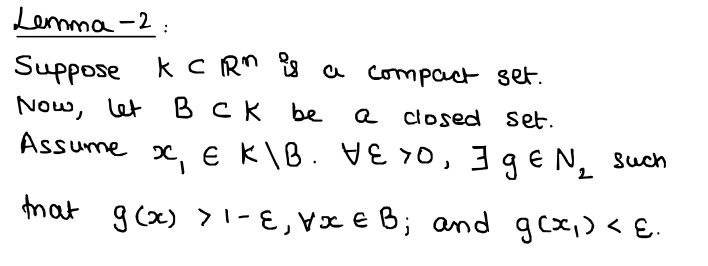 Lemma-2:
Suppose K ⊂ ℝⁿ is a compact set.
Now, let B ⊂ K be a closed set.
Assume x₁ ∈ K\B. ∀ε>0, ∃ g ∈ N₂ such
that g(x) > 1-ε, ∀x ∈ B; and g(x₁) < ε.